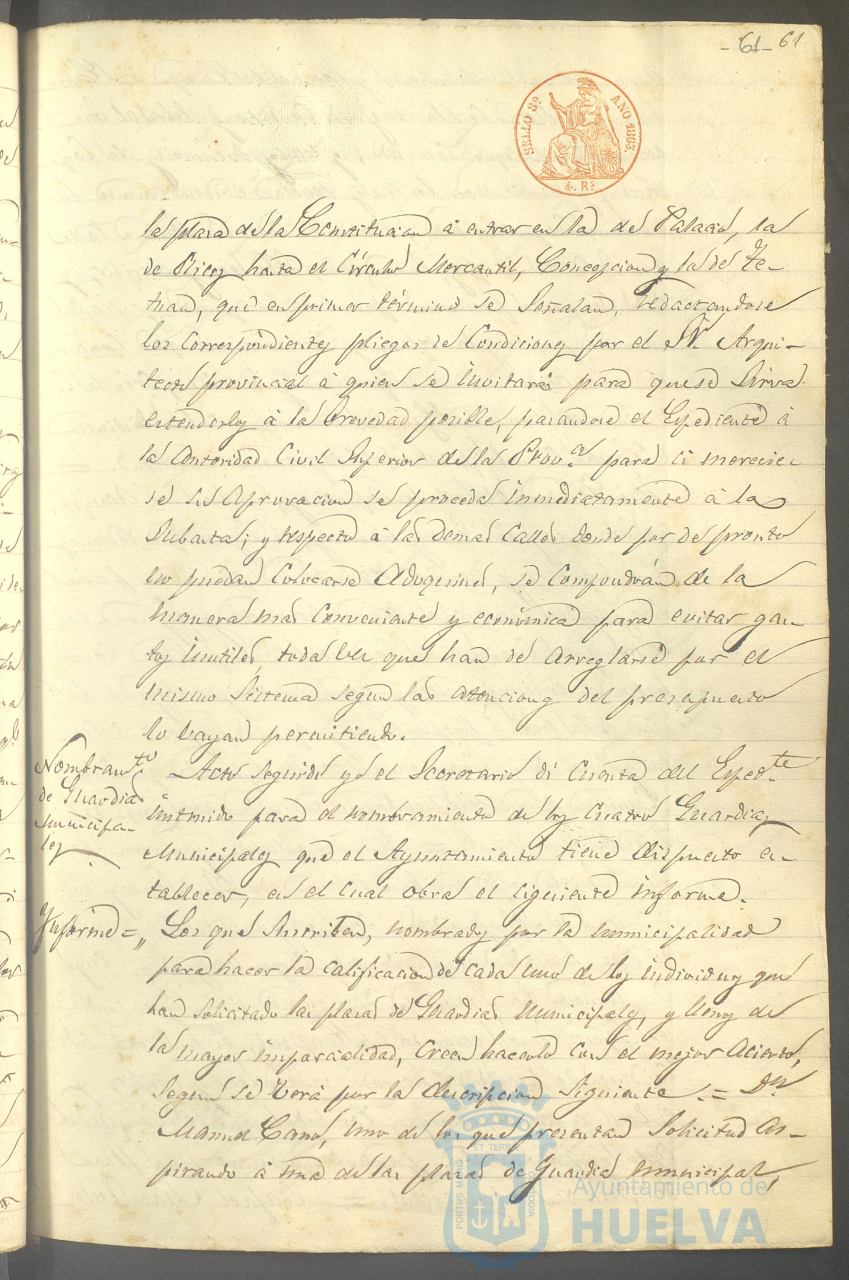 - 61 - 61
SELLO 8º AÑO 1863.
4. Rs
la plaza de la Constitucion à entrar en la de Palacio, la
de Ricos hasta el Círculo Mercantil, Concepcion y la de Te-
tuan, que en primer término se señalan, redactandose
los correspondientes pliegos de Condiciones por el Sr. Arqui-
tecto provincial à quien se invitará para que se sirva
estenderlos à la brevedad posible, pasandose el Espediente à
la Autoridad Civil Superior de la Prov.ª para si merecie-
se su Aprovacion se proceda inmediatamente à la
Subasta; y respecto à las demas Calles donde por de pronto
no puedan Colocarse Adoquines, se Compondrán de la
manera mas Conveniente y económica para evitar gas-
tos inutiles toda vez que han de Arreglarse por el
mismo Sistema segun las atenciones del presupuesto
lo vayan permitiendo.
Nombramto
de Guardias
municipa-
les.
Acto seguido yo el Secretario di Cuenta del Exped.te
instruido para el nombramiento de los Cuatro Guardias
Municipales que el Ayuntamiento tiene dispuesto es-
tablecer, en el cual obra el siguiente informe.
Informe = „ Los que Suscriben, nombrados por la municipalidad
para hacer la calificacion de cada uno de los individuos que
han solicitado las plazas de Guardias Municipales, y llenos de
la mayor imparcialidad, Creen hacerlo con el mejor Acierto,
segun se verá por la descripcion siguiente. = Dn.
Manuel Cano, uno de los que presentan Solicitud As-
pirando à una de las plazas de Guardia municipal,
PORTUS MARIS ET TERRE
Ayuntamiento de
HUELVA